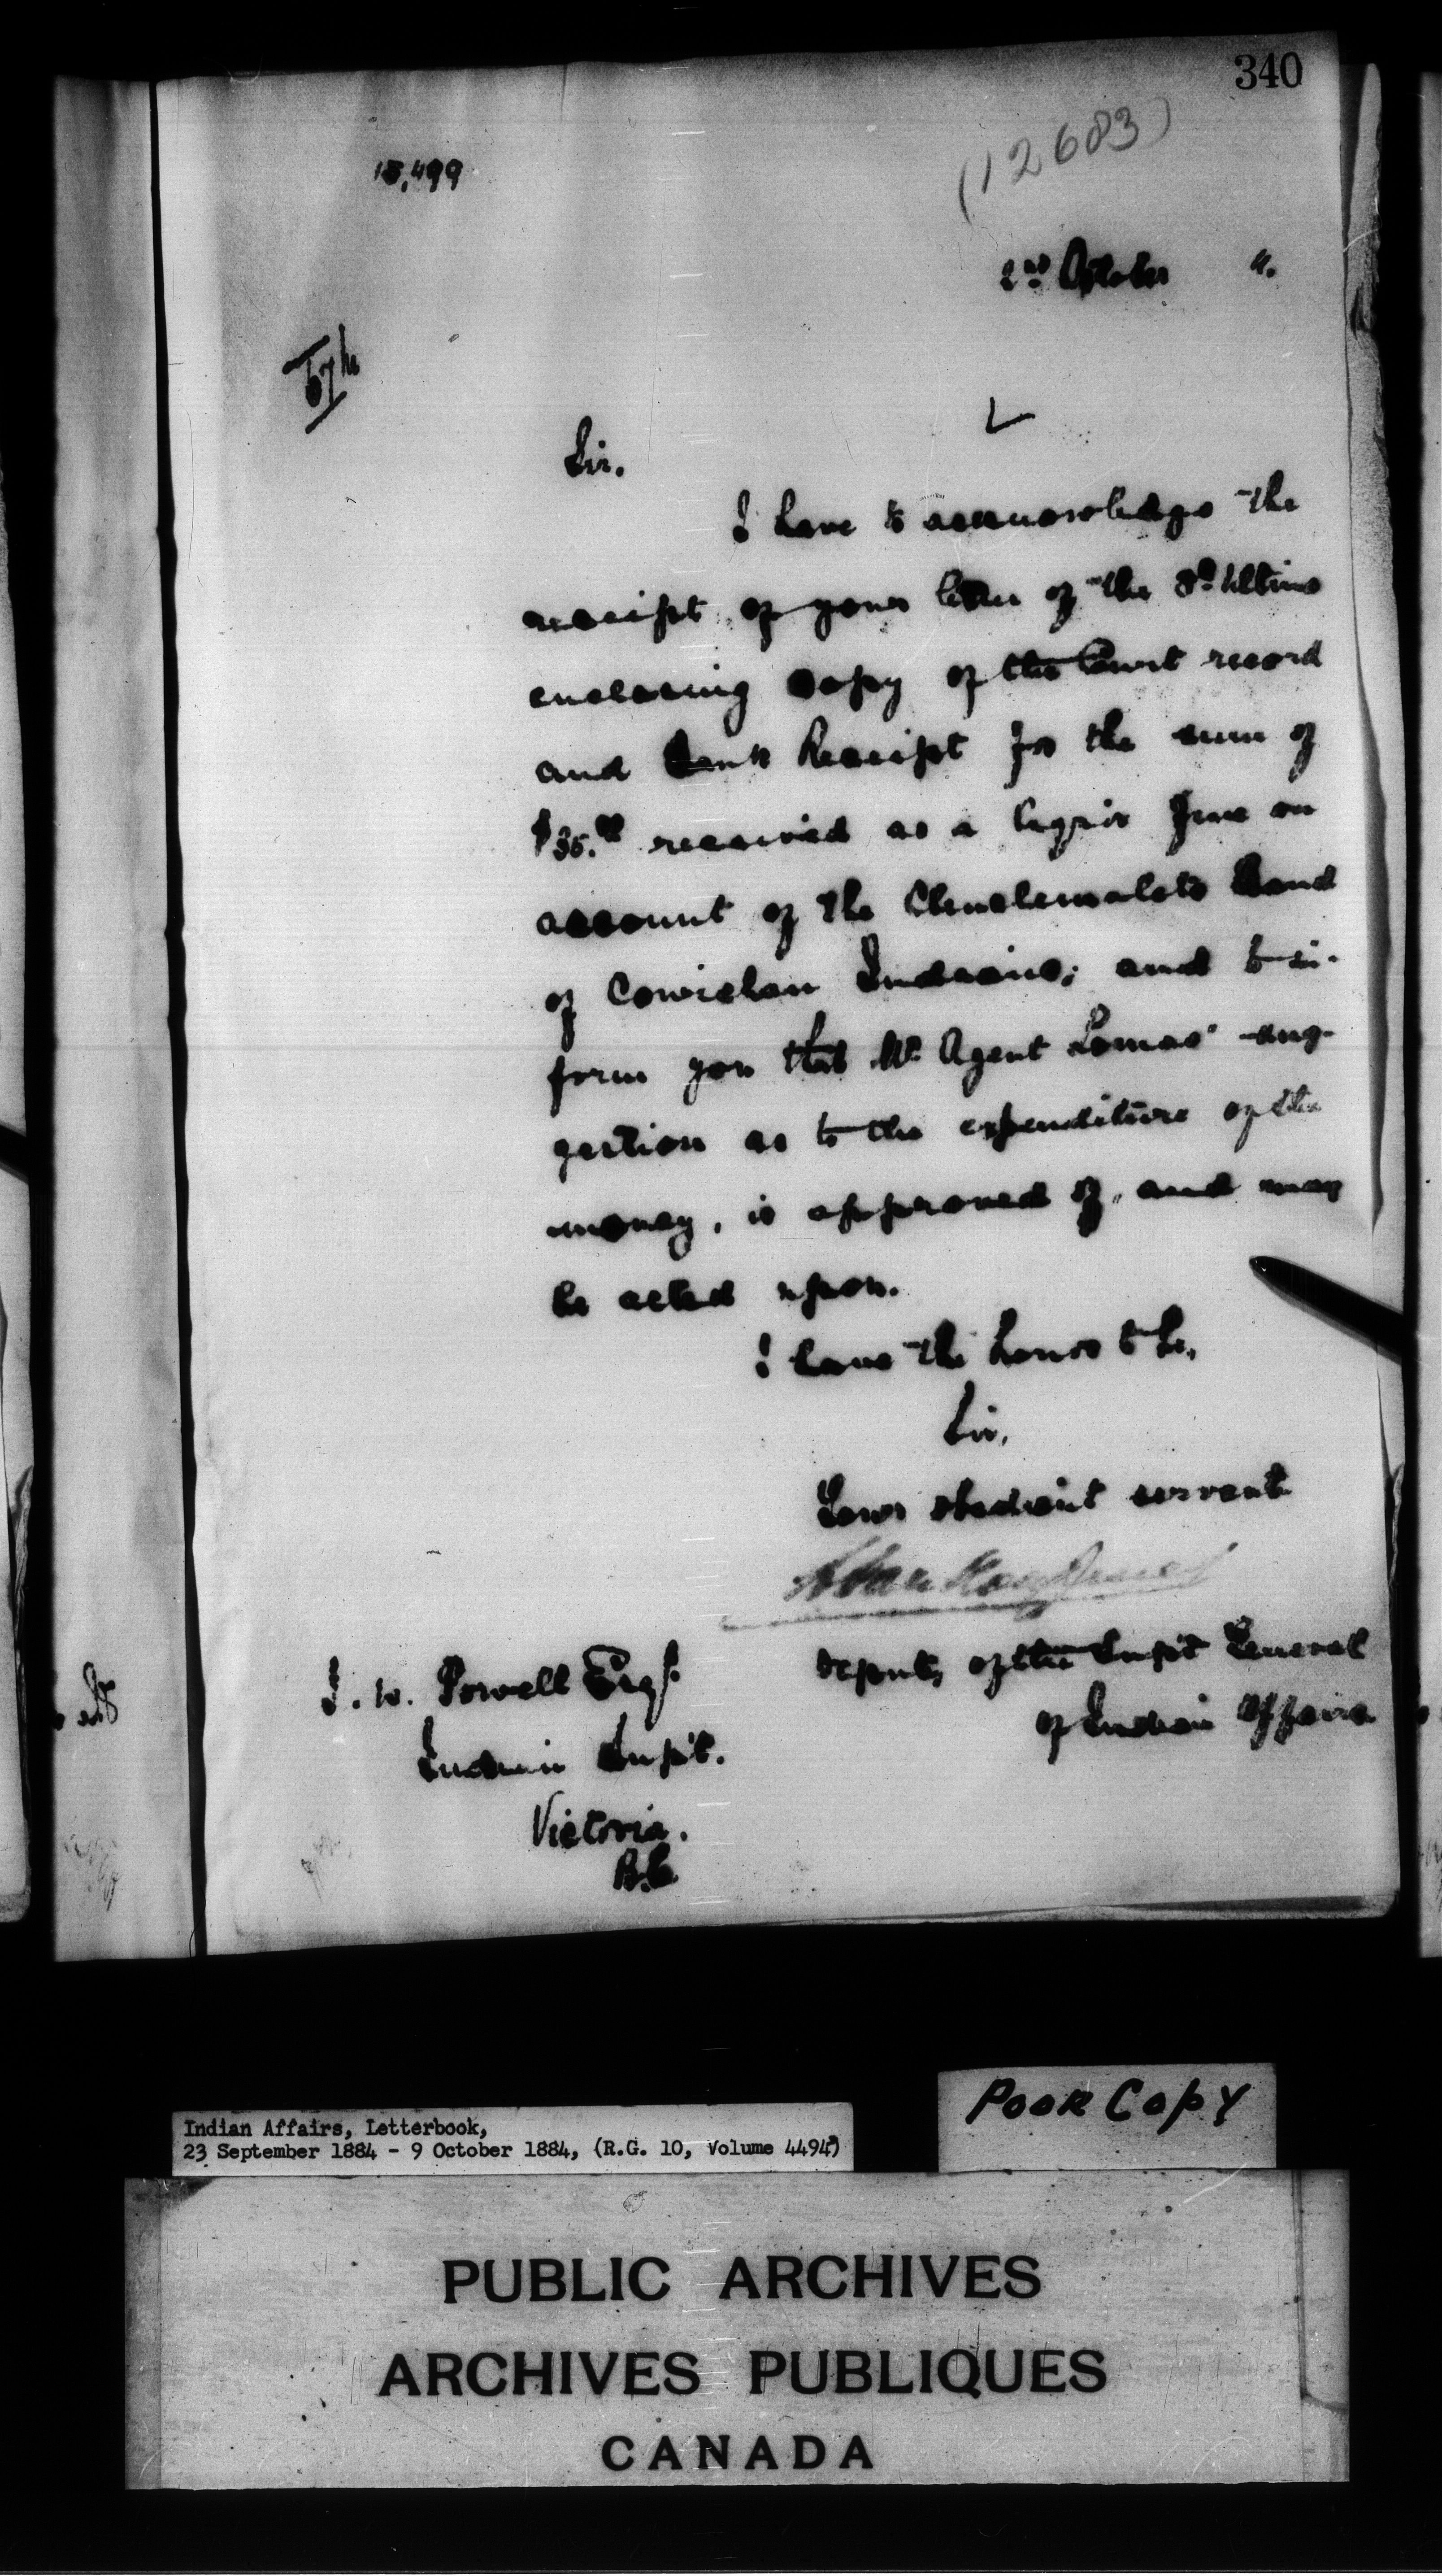 340
(12683)
15,499
2nd October
Sir.
I have to acknowledge the
receipt of your letter of the 3d Ultimo
enclosing copy of the Court record
and Bank Receipt for the sum of
$35.00 received as a liquor fine on
account of the Clemclemalets Band
of Cowichan Indians; and to in-
form you that Mr. Agent Lomas' sug-
gestion as to the expenditure of the
money, is approved of, and may
be acted upon.
I have the honor to be,
Sir,
Your obedient servant
Deputy of the Supt General
of Indian Affairs
I. W. Powell Esq.
Indian Supt.
Victoria.
B.C
POOR COPY
Indian Affairs, Letterbook,
23 September 1884 - 9 October 1884, (R.G. 10, Volume 4494)
PUBLIC ARCHIVES
ARCHIVES PUBLIQUES
CANADA